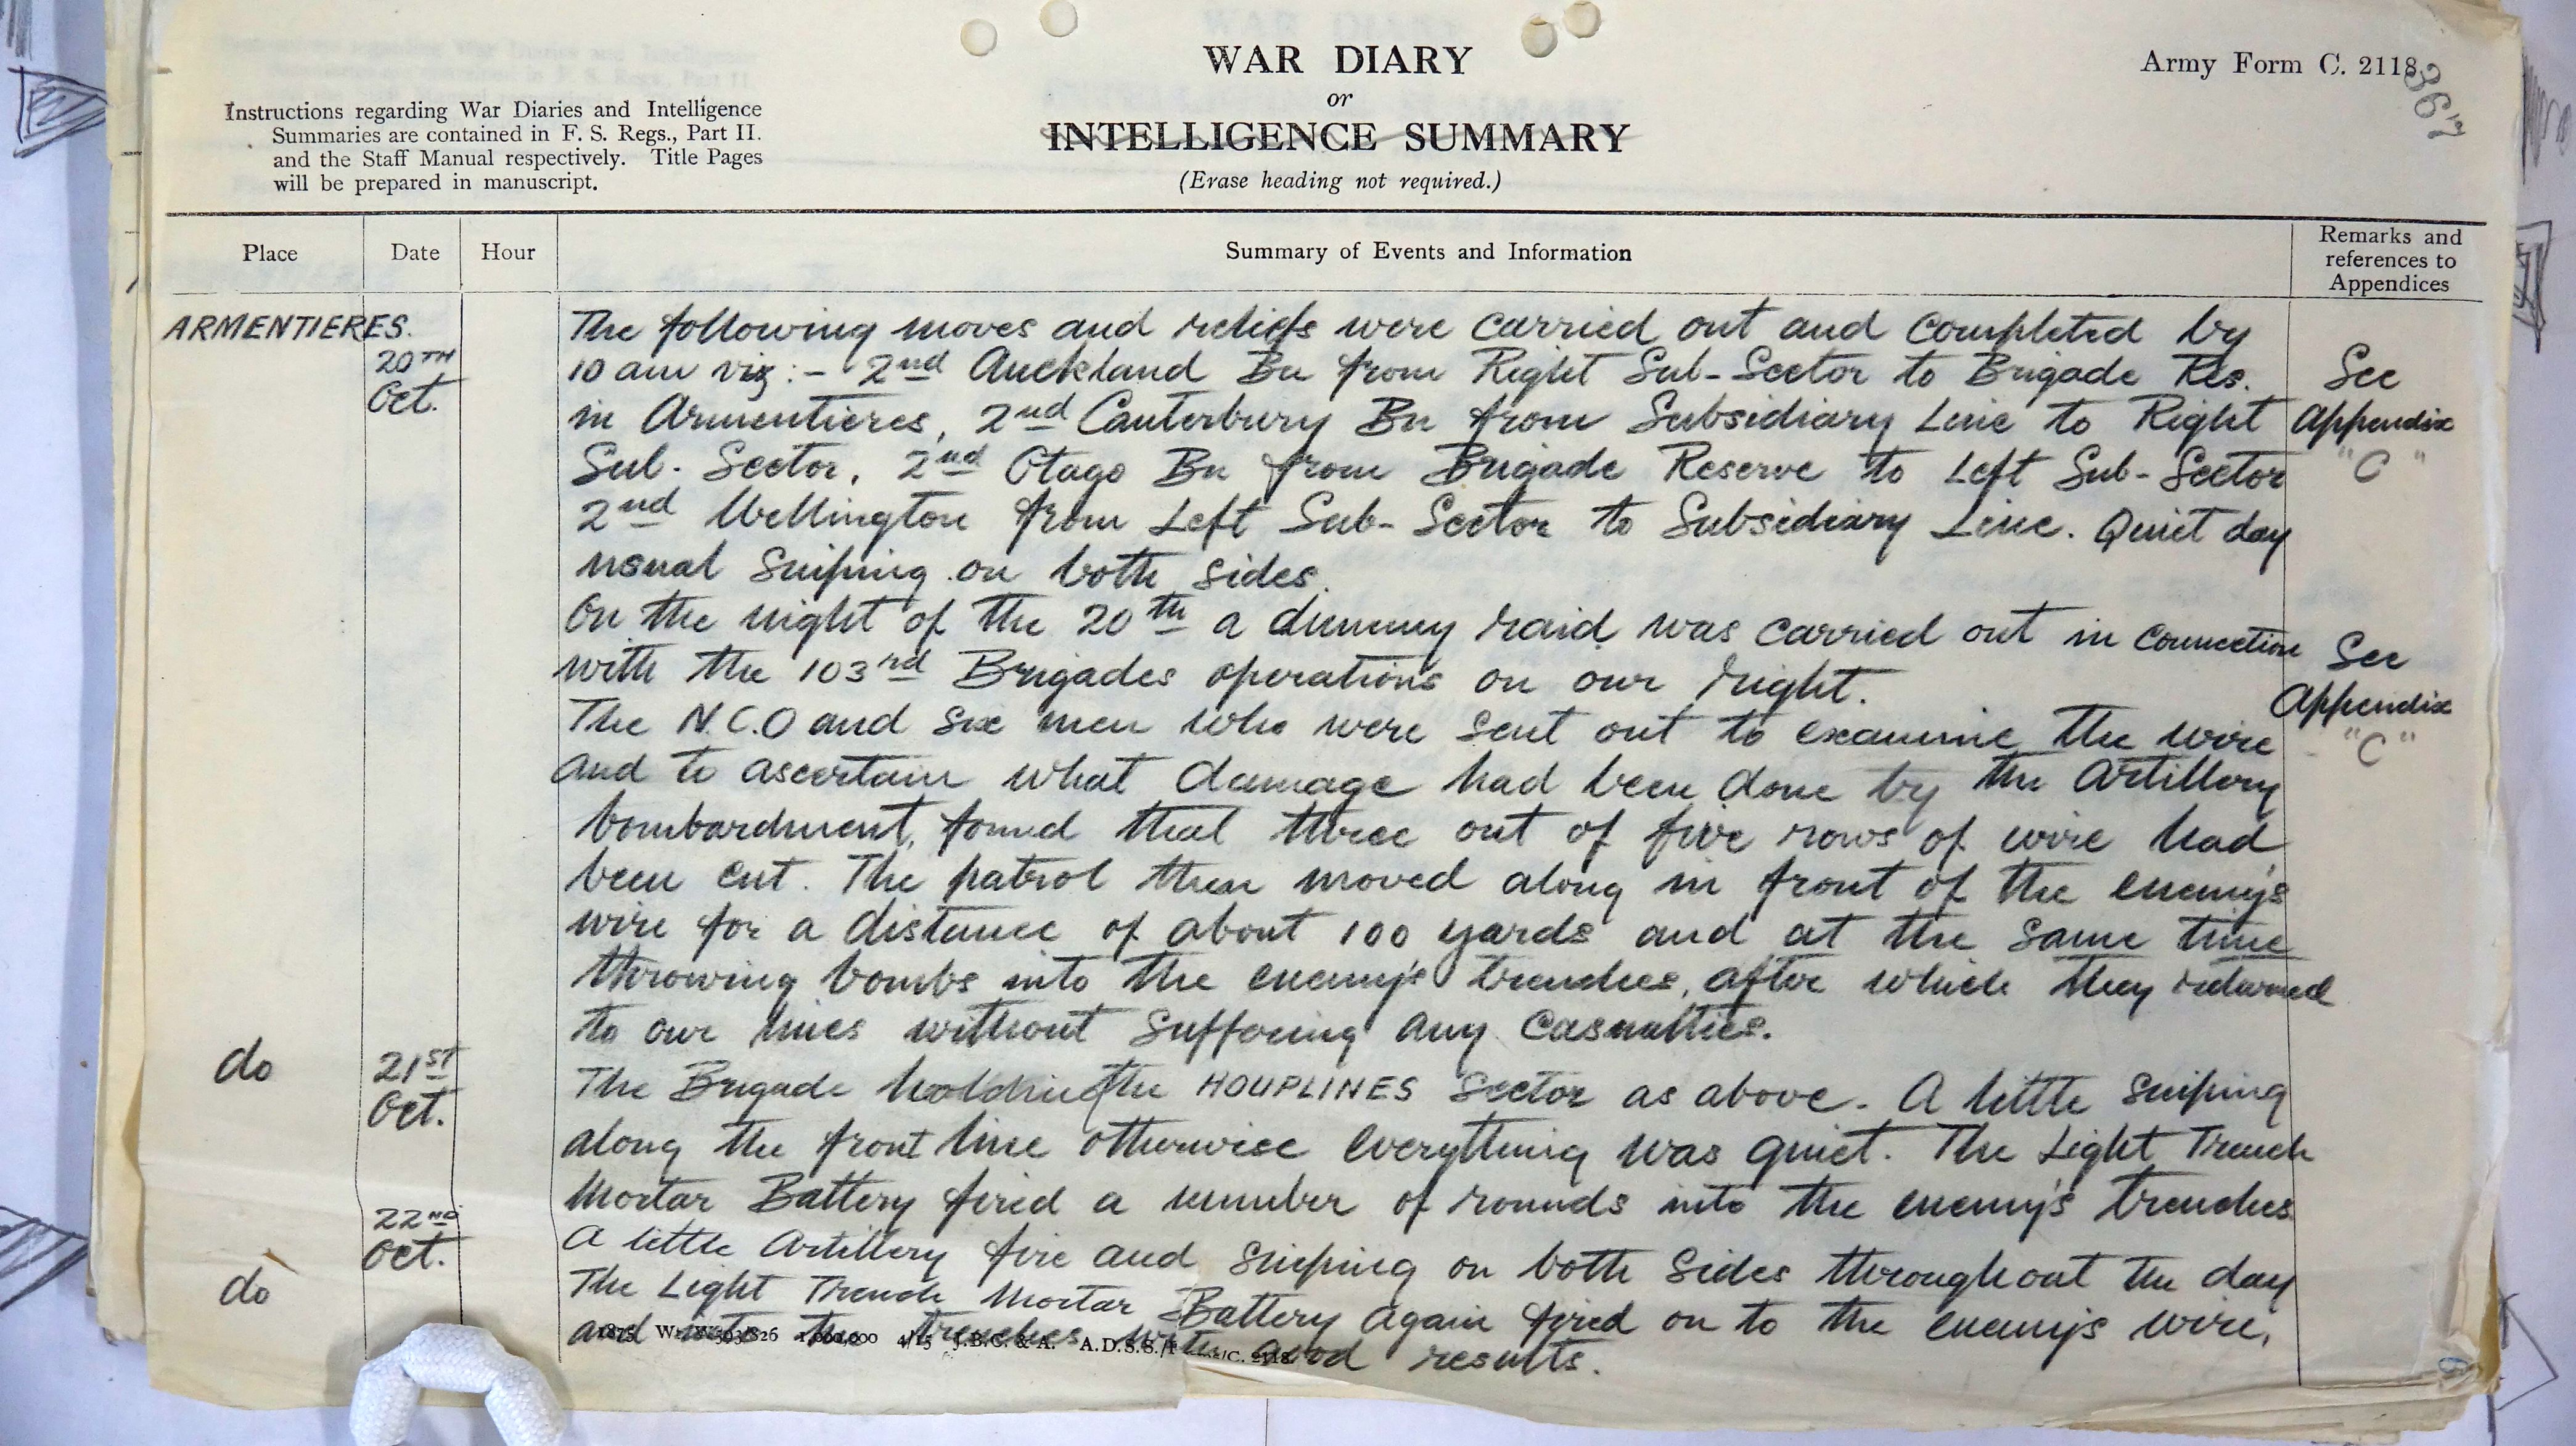 WAR DIARY
or
INTELLIGENCE SUMMARY
(Erase heading not required.)
Army Form C. 2118.
367
Instructions regarding War Diaries and Intelligence
Summaries are contained in F. S. Regs., Part II.
and the Staff Manual respectively. Title Pages
will be prepared in manuscript.
Place
Date
Hour
Summary of Events and Information
Remarks and
references to
Appendices
ARMENTIERES.
20TH
Oct.
The following moves and reliefs were carried out and completed by
10 am viz :- 2nd Auckland Bn from Right Sub-Sector to Brigade Res.
in Armentieres, 2nd Canterbury Bn from Subsidiary Line to Right
Sub. Sector, 2nd Otago Bn from Brigade Reserve to Left Sub-Sector
2nd Wellington from Left Sub-Sector to Subsidiary Line. Quiet day
usual sniping on both sides.
See
Appendix
"C"
On the night of the 20th a dummy raid was carried out in connection
with the 103rd Brigades operations on our right.
The N.C.O and six men who were sent out to examine the wire
and to ascertain what damage had been done by the Artillery
bombardment, found that three out of five rows of wire had
been cut. The patrol then moved along in front of the enemy's
wire for a distance of about 100 yards and at the same time
throwing bombs into the enemy's trenches, after which they returned
to our lines without suffering any casualties.
See
Appendix
"C"
do
21ST
Oct.
The Brigade holding the HOUPLINES Sector as above. A little sniping
along the front line otherwise everything was quiet. The Light Trench
Mortar Battery fired a number of rounds into the enemy's trenches
do
22ND
Oct.
A little Artillery fire and sniping on both sides throughout the day
The Light Trench Mortar Battery again fired on to the enemy's wire,
and into the trenches with good results.
1875 Wt. W593/826 1,000,000 4/15 J.B.C. & A. A.D.S.S./ /C. 2118.